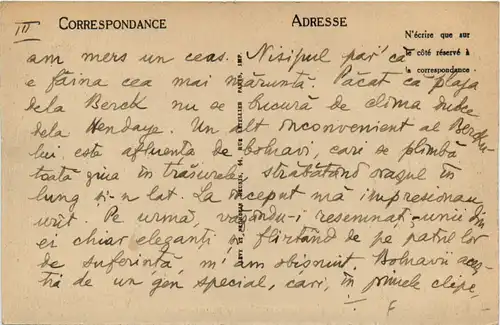 III
CORRESPONDANCE
ADRESSE
N'écrire que sur
le côté réservé à
la correspondance
am mers un ceas. Nisipul par'că
e făina cea mai măruntă. Păcat că plaja
dela Berck nu se bucură de clima dulce
dela Hendaye. Un alt inconvenient al Berck-
lui este afluența de bolnavi, cari se plimbă
toată ziua în trăsurele străbătând orașul în
lung și-n lat. La început mă impresionau
urît. Pe urmă, văzându-i resemnați, unii din
ei chiar eleganți și flirtând de pe patul lor
de suferință, m'am obișnuit. Bolnavii aceș-
tia de un gen special, cari, în primele clipe,